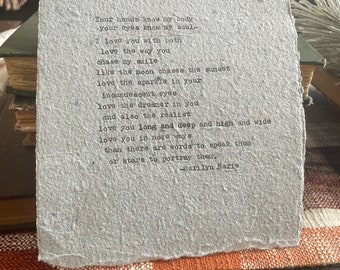 Your hands know my body
your eyes know my soul-
I love you with both
love the way you
chase my smile
like the moon chases the sunset
love the sparkle in your
incandescent eyes
love the dreamer in you
and also the realist
love you long and deep and high and wide
love you in more ways
than there are words to speak them
or stars to portray them.
-Marilyn Marie